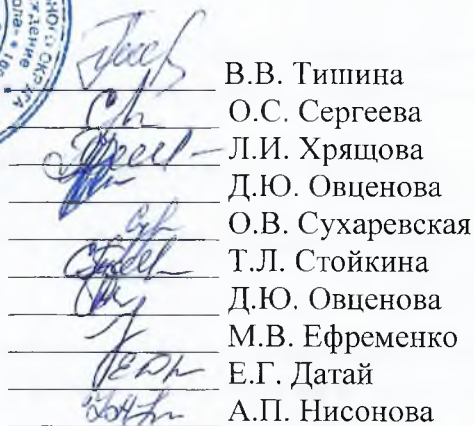 В.В. Тишина
О.С. Сергеева
Л.И. Хрящова
Д.Ю. Овценова
О.В. Сухаревская
Т.Л. Стойкина
Д.Ю. Овценова
М.В. Ефременко
Е.Г. Датай
А.П. Нисонова